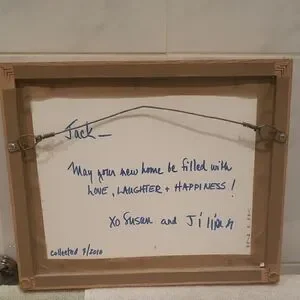 Jack—
May your new home be filled with
LOVE, LAUGHTER + HAPPINESS!
XO Susan and
collected 9/2010